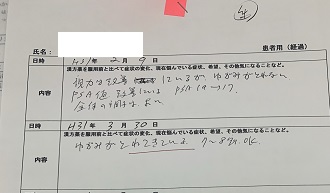 氏名：
患者用（経過）
日時 H31年 2月 9日
漢方薬を服用前と比べて症状の変化、現在悩んでいる症状、希望、その他気になることなど。
内容
視力は改善しているが ゆがみがとれない
PSA値 改善している PSA 19→17.
全体の調子はよい
日時 H31年 3月 30日
漢方薬を服用前と比べて症状の変化、現在悩んでいる症状、希望、その他気になることなど。
内容 ゆがみがとれてきている 7〜8割 O.K.